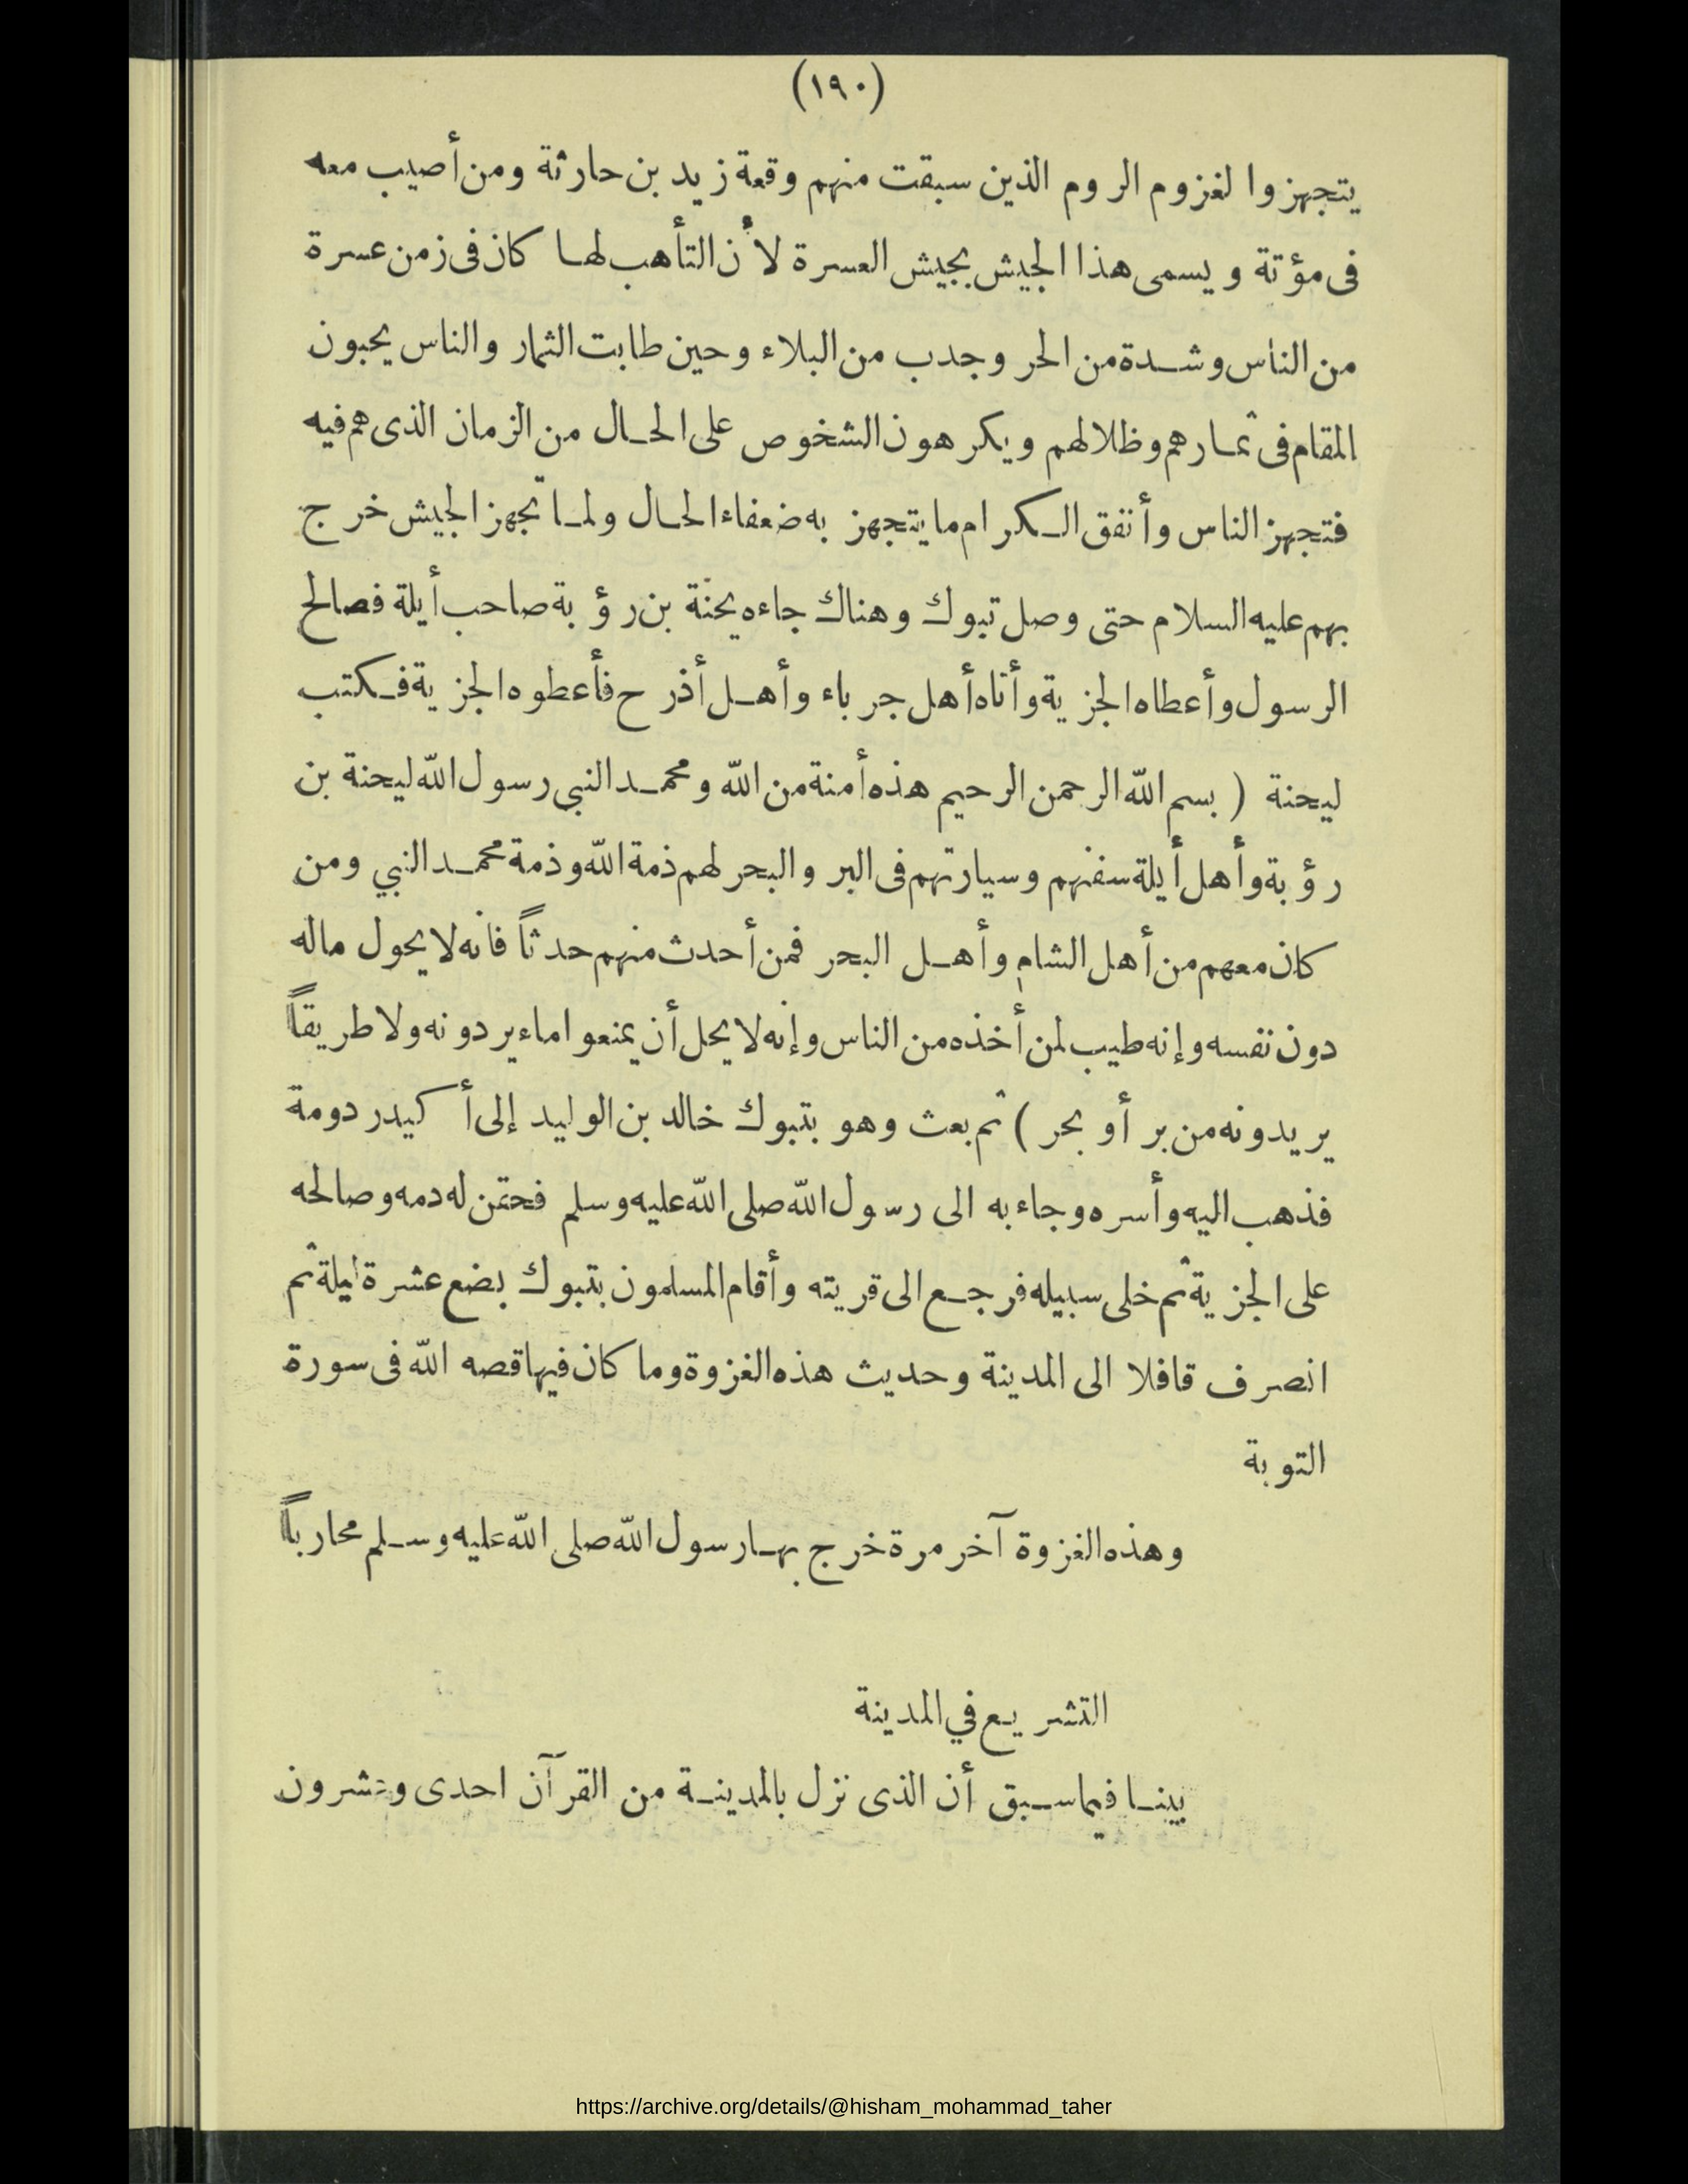 (١٩٠)
يتجهزوا لغزوم الروم الذين سبقت منهم وقعة زيد بن حارثة ومن أصيب معه
فى مؤتة ويسمى هذا الجيش بجيش العسرة لأن التأهب لها كان فى زمن عسرة
من الناس وشدة من الحر وجدب من البلاء وحين طابت الثمار والناس يحبون
المقام فى ثمارهم وظلالهم ويكرهون الشخوص على الحال من الزمان الذى هم فيه
فتجهز الناس وأنفق الكرام ما يتجهز به ضعفاء الحال ولما تجهز الجيش خرج
بهم عليه السلام حتى وصل تبوك وهناك جاءه يحنّة بن رؤبة صاحب أيلة فصالح
الرسول وأعطاه الجزية وأتاه أهل جرباء وأهل أذرح فأعطوه الجزية فكتب
ليحنة ( بسم الله الرحمن الرحيم هذه أمنة من الله ومحمد النبي رسول الله ليحنة بن
رؤبة وأهل أيلة سفنهم وسيارتهم فى البر والبحر لهم ذمة الله وذمة محمد النبي ومن
كان معهم من أهل الشام وأهل البحر فمن أحدث منهم حدثاً فانه لا يحول ماله
دون نفسه وإنه طيب لمن أخذه من الناس وإنه لا يحل أن يمنعوا ماء يردونه ولا طريقاً
يريدونه من بر أو بحر ) ثم بعث وهو بتبوك خالد بن الوليد إلى أكيدر دومة
فذهب اليه وأسره وجاء به الى رسول الله صلى الله عليه وسلم فحقن له دمه وصالحه
على الجزية ثم خلى سبيله فرجع الى قريته وأقام المسلمون بتبوك بضع عشرة ليلة ثم
انصرف قافلا الى المدينة وحديث هذه الغزوة وما كان فيها قصه الله فى سورة
التوبة
وهذه الغزوة آخر مرة خرج بها رسول الله صلى الله عليه وسلم محارباً
التشريع في المدينة
بينا فيما سبق أن الذى نزل بالمدينة من القرآن احدى وعشرون
https://archive.org/details/@hisham_mohammad_taher